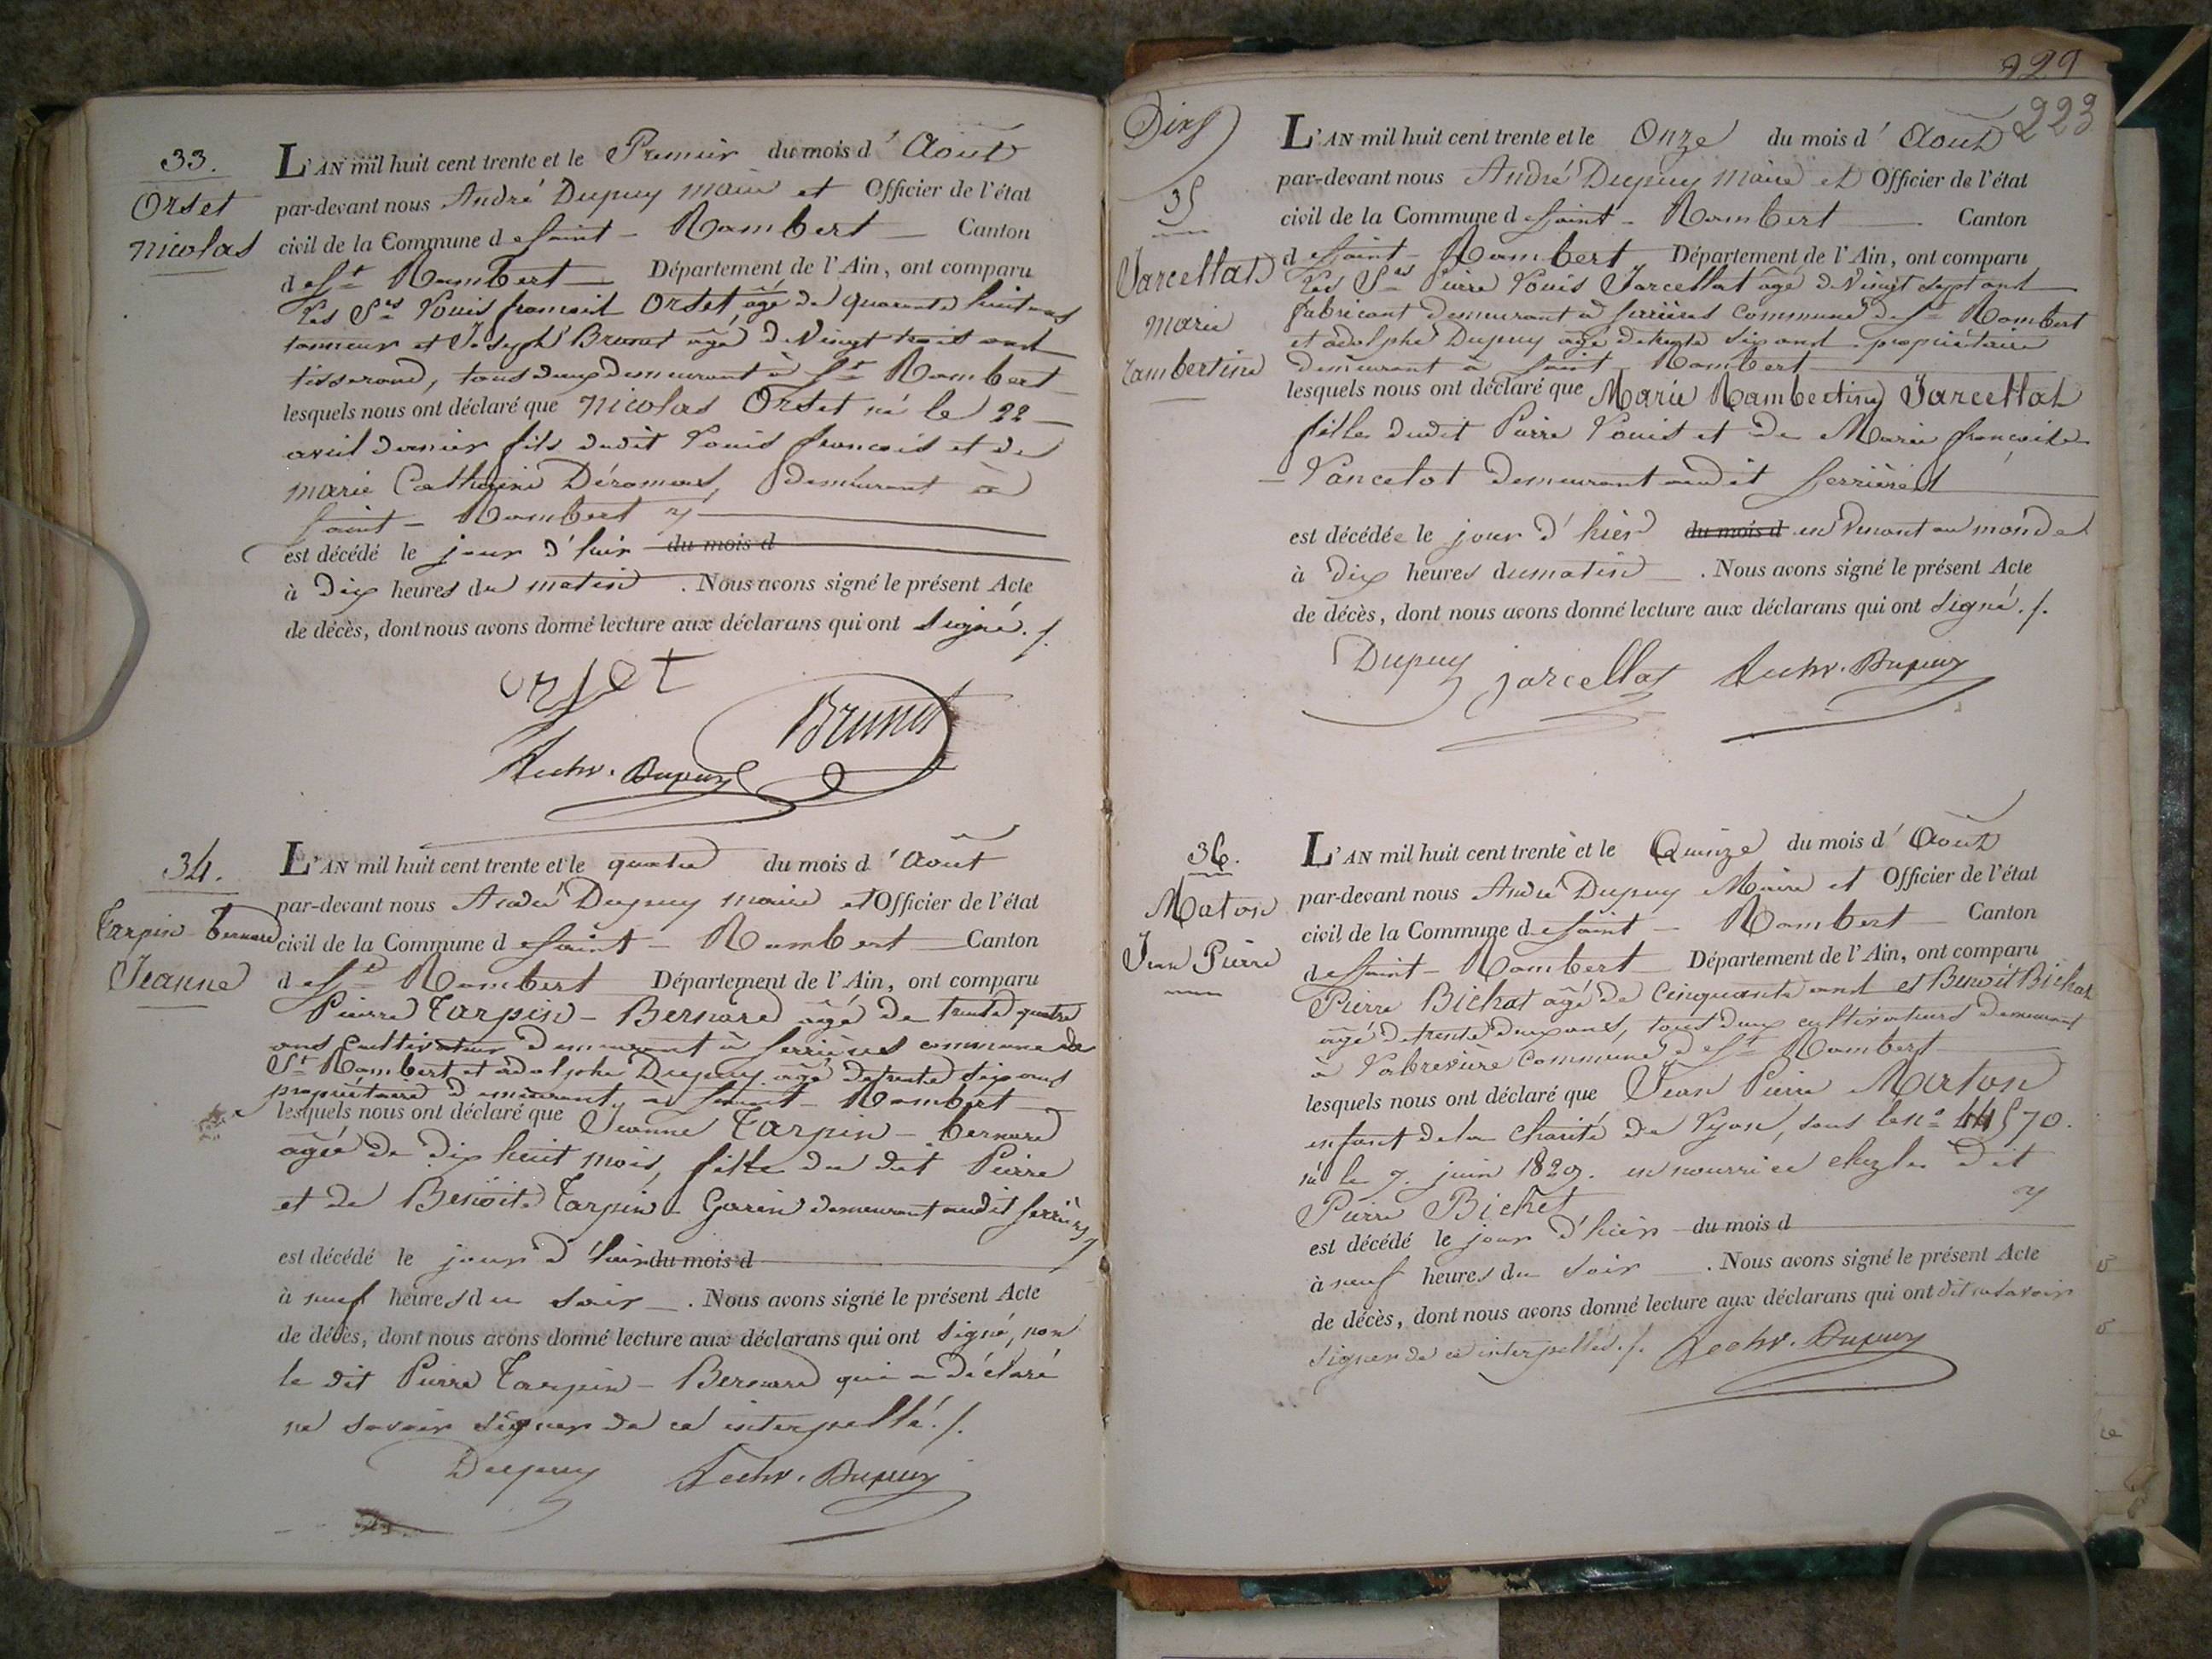 33.
Orset
Nicolas
L'AN mil huit cent trente et le Premier du mois d'Août
par-devant nous André Dupuy maire et Officier de l'état
civil de la Commune de Saint-Rambert Canton
de St Rambert Département de l'Ain, ont comparu
Les Srs Louis françois Orset, âgé de quarante huit ans
tanneur et Joseph Brunet âgé de Vingt trois ans
tisserand, tous deux demeurant à St Rambert
lesquels nous ont déclaré que Nicolas Orset né le 22
avril dernier fils dudit Louis françois et de
marie Catherine demeurant à
Saint-Rambert
est décédé le jour d'hier du mois d
à Dix heures du matin. Nous avons signé le présent Acte
de décès, dont nous avons donné lecture aux déclarans qui ont signé./.
orset
Brunet
Dupuy
34.
Tarpin bernard
Jeanne
L'AN mil huit cent trente et le quatre du mois d'Août
par-devant nous André Dupuy maire et Officier de l'état
civil de la Commune de Saint-Rambert Canton
de St Rambert Département de l'Ain, ont comparu
Pierre Tarpin-Bernard âgé de trente quatre
ans Cultivateur demeurant à Serrières commune de
St Rambert et adolphe Dupuy âgé de trente six ans
propriétaire demeurant à Saint-Rambert
lesquels nous ont déclaré que Jeanne Tarpin-bernard
âgée de dix huit mois, fille du dit Pierre
et de Benoite Tarpin-Garin demeurant audit Serrières
est décédé le jour d'hier du mois d
à neuf heures du soir. Nous avons signé le présent Acte
de décès, dont nous avons donné lecture aux déclarans qui ont signé, non
le dit Pierre Tarpin-Bernard qui a déclaré
ne savoir signer de ce interpellé./.
Dupuy Dupuy
229
223
35
Jarcellat
Marie
Rambertine
L'AN mil huit cent trente et le Onze du mois d'Août
par-devant nous André Dupuy maire et Officier de l'état
civil de la Commune de Saint-Rambert Canton
de Saint-Rambert Département de l'Ain, ont comparu
Les Srs Pierre Louis Jarcellat âgé de Vingt sept ans
fabricant demeurant à Serrières Commune de St Rambert
et adolphe Dupuy âgé de trente six ans propriétaire
demeurant à Saint-Rambert
lesquels nous ont déclaré que Marie Rambertine Jarcellat
fille dudit Pierre Louis et de Marie françoise
Lancelot demeurant audit Serrières
est décédée le jour d'hier du mois d en venant au monde
à dix heures du matin. Nous avons signé le présent Acte
de décès, dont nous avons donné lecture aux déclarans qui ont signé./.
Dupuy jarcellat Dupuy
36.
Maton
Jean Pierre
L'AN mil huit cent trente et le Quinze du mois d'Août
par-devant nous André Dupuy Maire et Officier de l'état
civil de la Commune de Saint-Rambert Canton
de Saint-Rambert Département de l'Ain, ont comparu
Pierre Bichat âgé de Cinquante ans et Benoit Bichat
âgé de trente deux ans, tous deux cultivateurs demeurant
à Commune de St Rambert
lesquels nous ont déclaré que Jean Pierre Marton
enfant de la Charité de Lyon, sous le no 44570.
né le 7. juin 1829. en nourrice chez le dit
Pierre Bichet
est décédé le jour d'hier du mois d
à neuf heures du soir. Nous avons signé le présent Acte
de décès, dont nous avons donné lecture aux déclarans qui ont dit ne savoir
signer de ce interpellés./. Dupuy